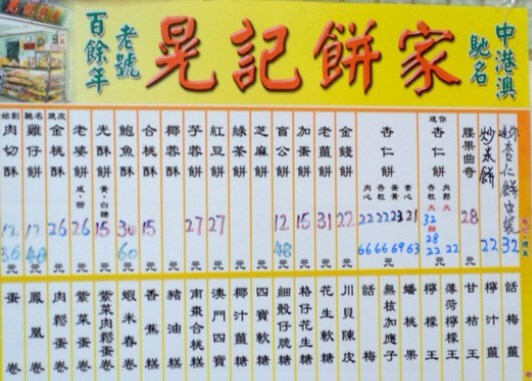 百餘年老號
晃記餅家
中港澳馳名
始創 肉切酥 12 36 元
馳名 雞仔餅 17 48 元
脆皮 金桃酥 26 元
老婆餅 咸・甜 26 元
光酥餅 黃・白糖 15 元
鮑魚酥 30 60 元
合桃酥 15 元
椰蓉酥 元
芋蓉餅 27 元
紅豆餅 27 元
綠茶餅 元
芝麻餅 元
盲公餅 12 48 元
加蛋餅 15 元
老薑餅 31 元
金錢餅 22 元
杏仁餅 肉心 杏粒 蛋黃 杏肉 22 22 23 21 66 66 69 63 元
迷你 杏仁餅 杏粒 大 肉鬆 大 32 28 22 22 元
腰果曲奇 28 元
炒米餅 22 元
杏仁餅 32 元
蛋卷
鳳凰卷
肉鬆蛋卷
紫菜蛋卷
紫菜肉鬆蛋卷
蝦米春卷
香蕉糕
豬油糕
南棗合桃糕
澳門四寶
椰汁薑糖
四寶軟糖
細殼仔脆糖
格仔花生糖
花生軟糖
川貝陳皮
話梅
無核加應子
蟠桃果
檸檬王
薄荷檸檬王
甘桔王
檸汁薑
話梅